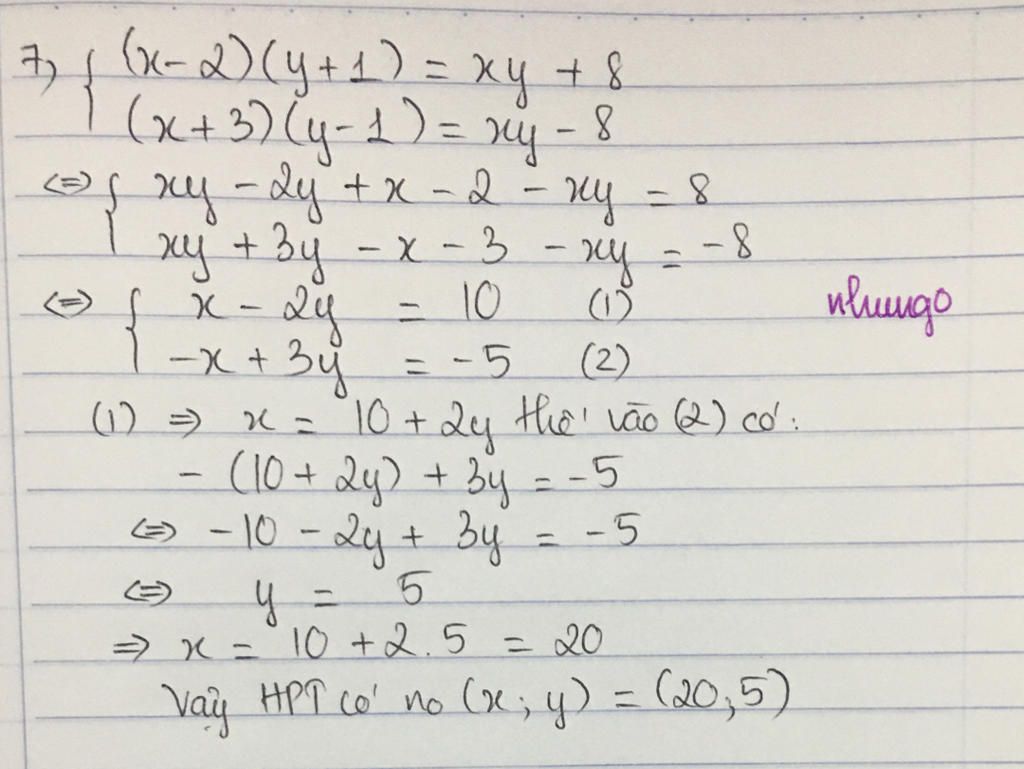 7, { (x-2)(y+1) = xy + 8
(x+3)(y-1) = xy - 8
⇔ { xy - 2y + x - 2 - xy = 8
xy + 3y - x - 3 - xy = -8
⇔ { x - 2y = 10 (1)
nhungo
-x + 3y = -5 (2)
(1) ⇒ x = 10 + 2y thế vào (2) có:
- (10 + 2y) + 3y = -5
⇔ -10 - 2y + 3y = -5
⇔ y = 5
⇒ x = 10 + 2.5 = 20
Vậy HPT có no (x; y) = (20; 5)